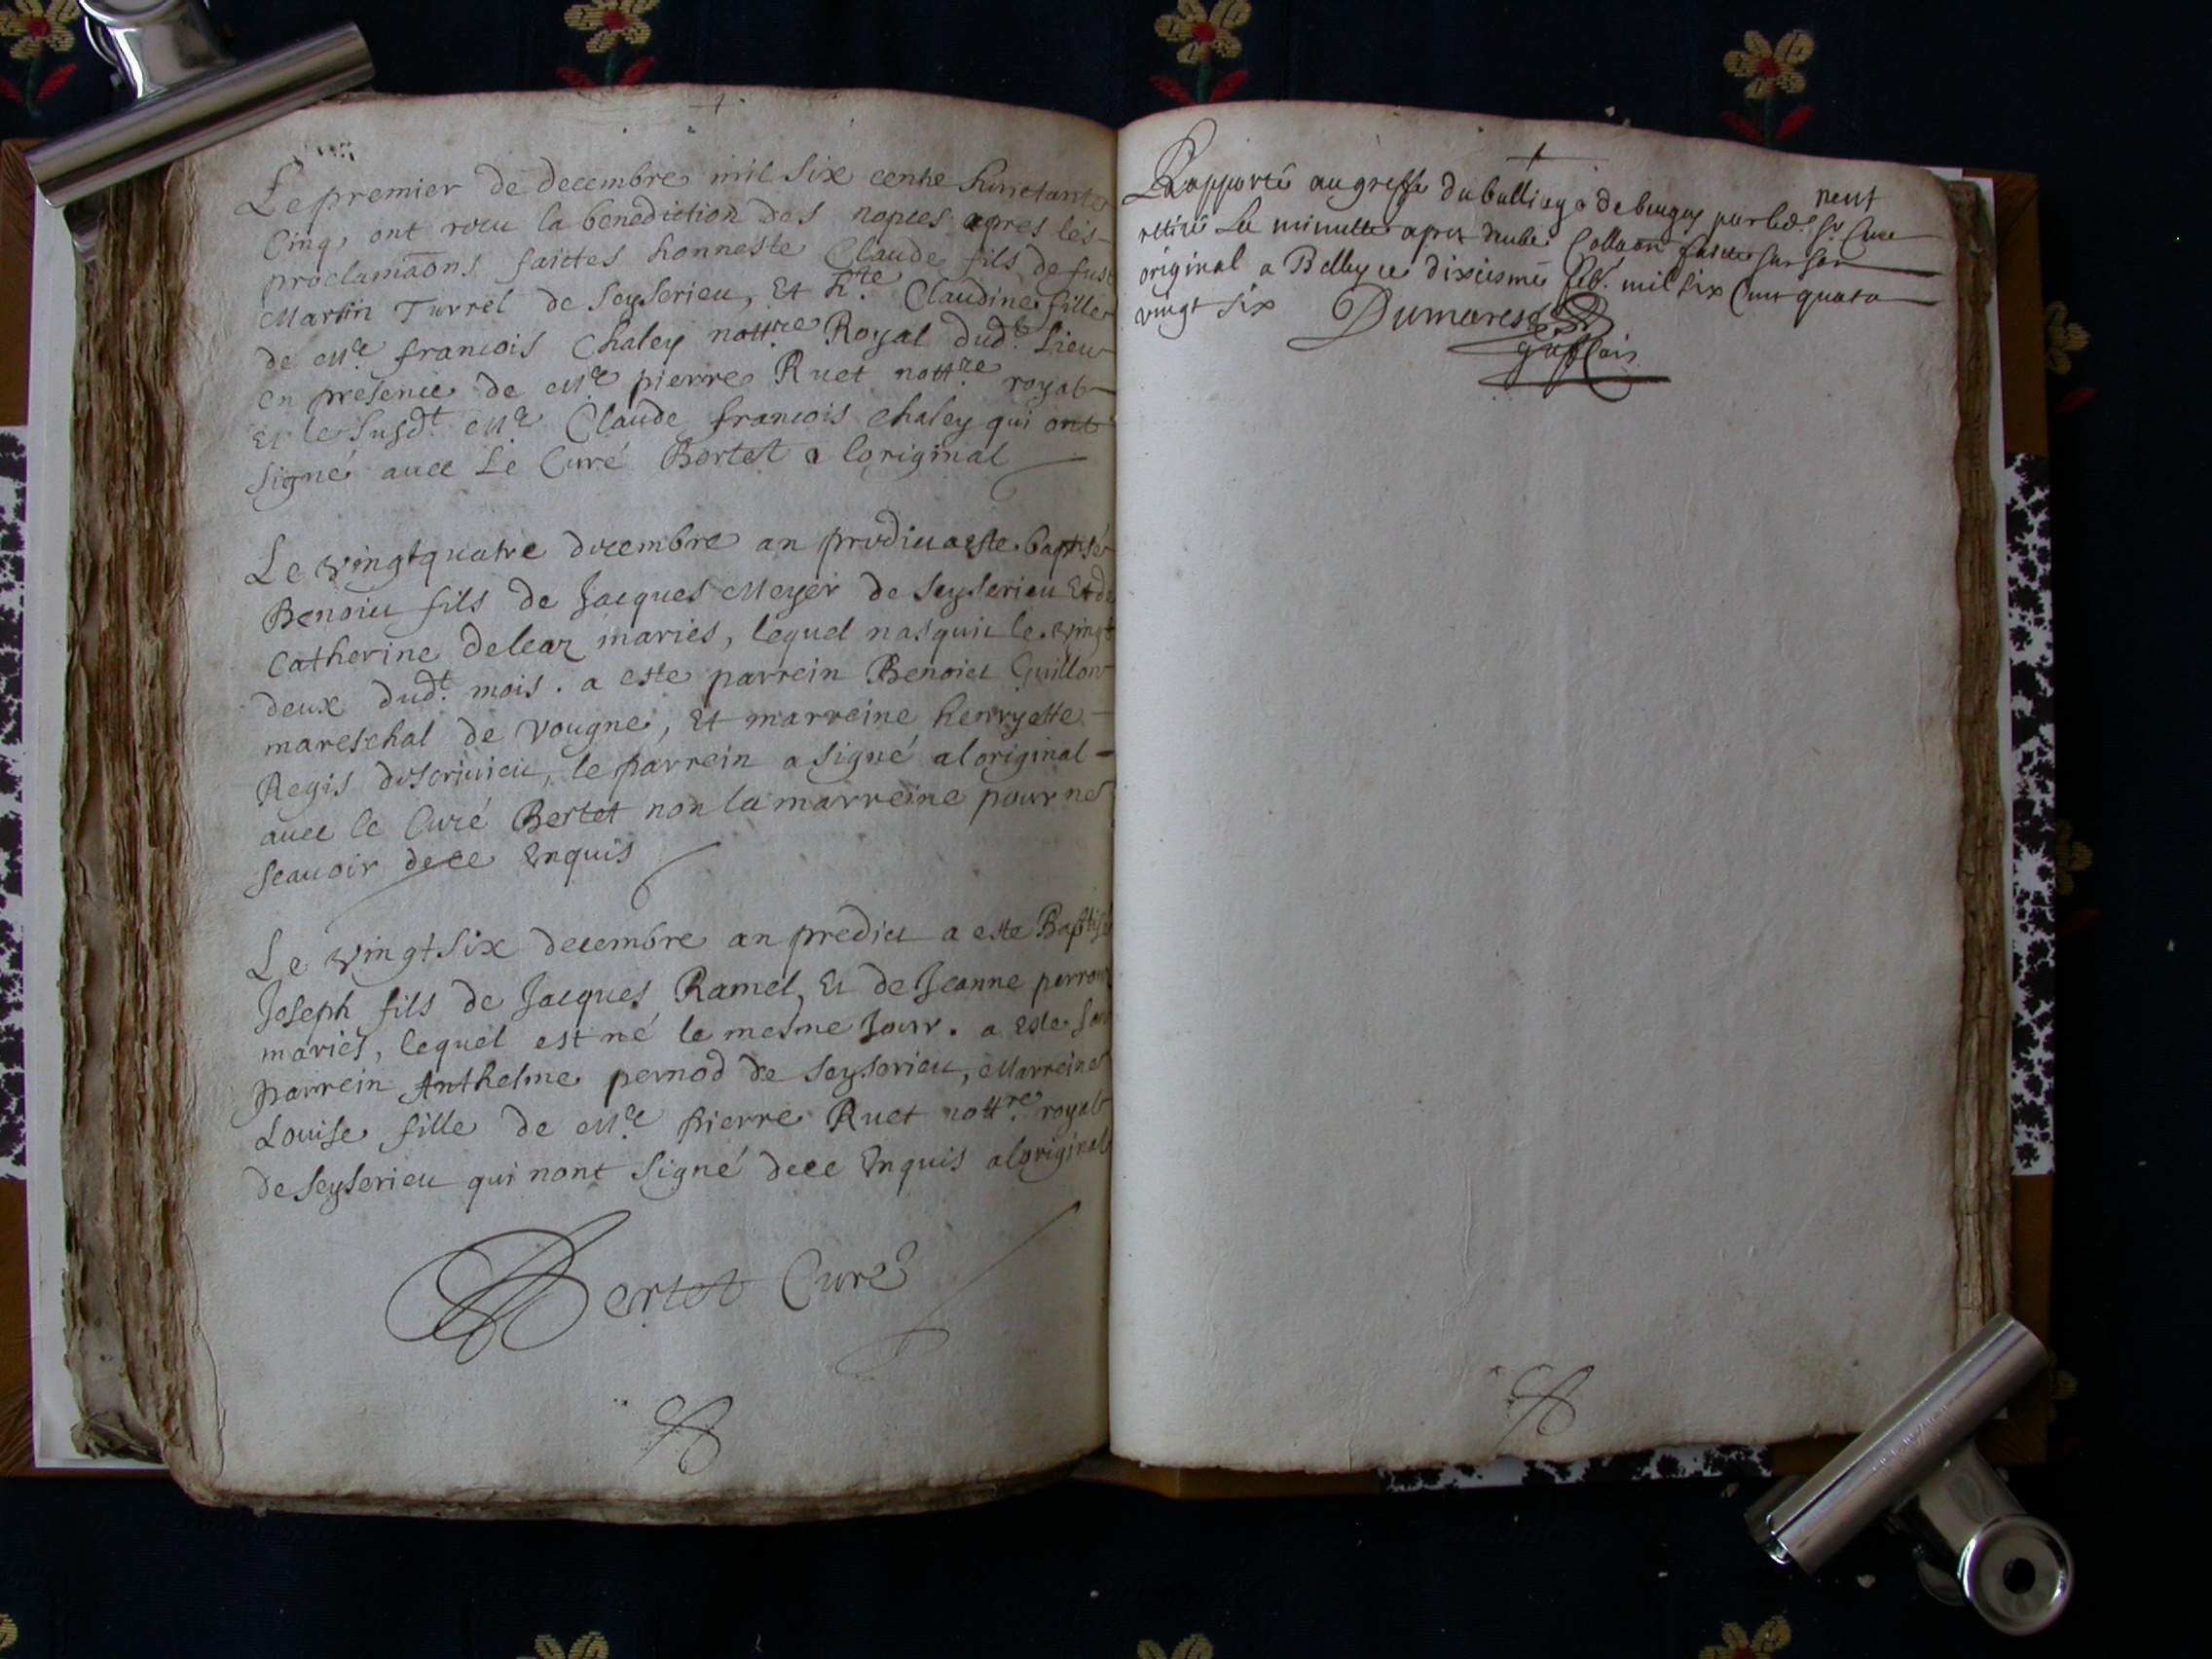 Le premier de decembre mil six cents huictante
Cinq, ont receu la benediction des nopces apres les
proclamaōns faictes honneste Claude fils de fust
Martin Turrel de Seyserieu, Et h.te Claudine fille
de M.e francois Chaley nott.re Royal dud.t lieu
en presence de M.e pierre Ruet nott.re royal
Et le susd.t M.e Claude francois chaley qui ont
signé auec Le Curé Bertet a loriginal
Le vingtquatre decembre an predict a este baptisé
Benoict fils de Jacques Meyer de Seyserieu Et de
Catherine deleaz mariés, lequel nasquit le vingt
deux dud.t mois. a este parrein Benoict Guillon
mareschal de Vougne, Et marreine henryette
Regis le parrein a signé a loriginal
auec le Curé Bertet non la marreine pour ne
scauoir de ce Enquis
Le vingt six decembre an predict a este Baptisé
Joseph fils de Jacques Ramel, Et de Jeanne
mariés, lequel est né le mesme Jour. a este son
parrein Anthelme pernod de Seyserieu, Marreine
Louise fille de M.e pierre Ruet nott.re royal
de Seyserieu qui nont signé de ce Enquis a loriginal
Bertet Curé
Rapporté au greffe du balliage de bugey par led. sr Cure
retiré La minutte apres deube Collaōn faicte sur son
original a Belley ce dixiesme feb. mil six Cent quatre
vingt six Dumarest